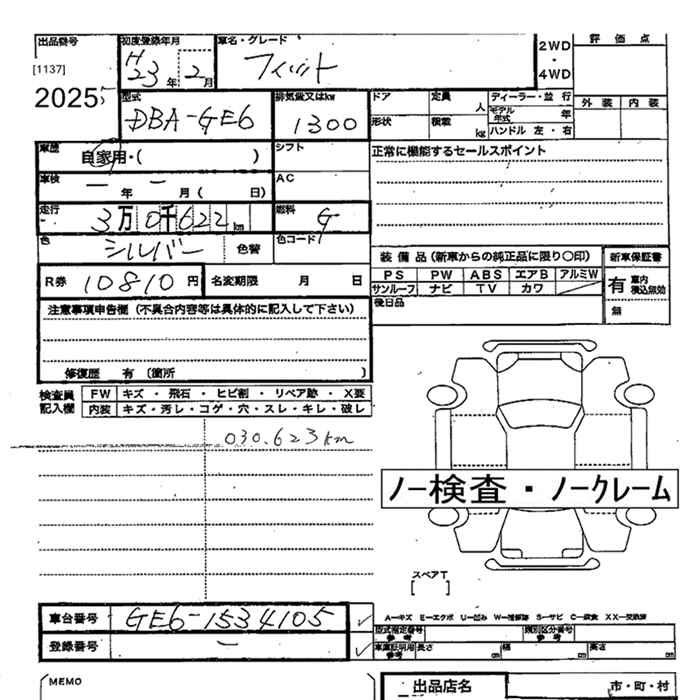 出品番号
[1137]
20255
初度登録年月
H23年2月
車名・グレード
フィット
2WD・4WD
評価点
外装 内装
型式
DBA-GE6
排気量又はkw
1300
ドア
定員 人
ディーラー・並行
モデル年式 年
形状
積載 kg
ハンドル 左・右
車歴
自家用・( )
シフト
正常に機能するセールスポイント
車検
一年一月( 日)
AC
走行
3万0千622km
燃料
G
色
シルバー
色替
色コード
装備品(新車からの純正品に限り○印)
新車保証書
PS PW ABS エアB アルミW
サンルーフ ナビ TV カワ
有 車内積込無効
無
後日品
R券 10810円
名変期限 月 日
注意事項申告欄(不具合内容等は具体的に記入して下さい)
修復歴 有 〔箇所 〕
検査員記入欄
FW キズ・飛石・ヒビ割・リペア跡・X要
内装 キズ・汚レ・コゲ・穴・スレ・キレ・破レ
030.623km
ノー検査・ノークレーム
スペアT
[ ]
車台番号
GE6-1534105 ✓
登録番号
ー ✓
A―キズ E―エクボ U―凹み W―補修跡 S―サビ C―腐食 XX―交換済
型式指定番号 参考
類別区分番号 参考
車庫証明用 参考 長さ cm 幅 cm 高さ cm
MEMO
出品店名
市・町・村